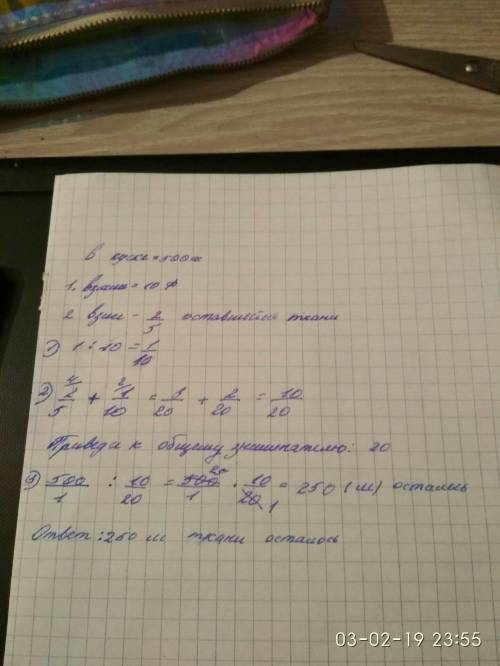 В куске = 500 м
1. взяли = 10 %
2 взяли - 2/5 оставшейся ткани
1) 1 : 10 = 1/10
2) 2/5 (4) + 1/10 (2) = 8/20 + 2/20 = 10/20
Приведа к общему знаменателю: 20
3) 500/1 : 10/20 = 500/1 (25) · 10/20 (1) = 250 (м) осталось
Ответ: 250 м ткани осталось
03-02-19 23:55